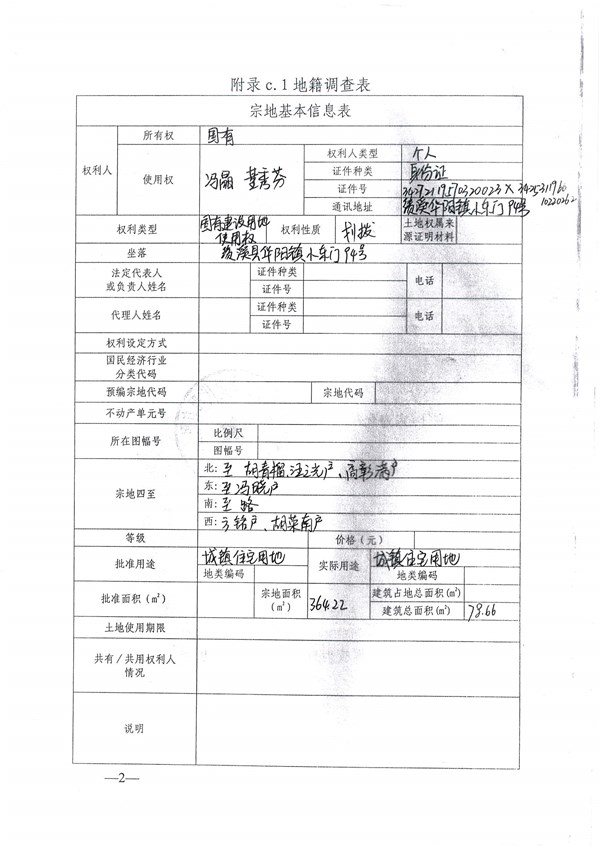 附录 c.1 地籍调查表
宗地基本信息表
权利人 所有权 国有
使用权 冯晶 董秀芬 权利人类型 个人
证件种类 身份证
证件号
通讯地址 绩溪华阳镇小东门94号
权利类型 国有建设用地使用权 权利性质 划拨 土地权属来源证明材料
坐落 绩溪县华阳镇小东门94号
法定代表人或负责人姓名 证件种类 电话
证件号
代理人姓名 证件种类 电话
证件号
权利设定方式
国民经济行业分类代码
预编宗地代码 宗地代码
不动产单元号
所在图幅号 比例尺
图幅号
宗地四至 北：至 胡 户、 户
东：至冯晓户
南：至 路
西：方铭户、胡菜南户
等级 价格（元）
批准用途 城镇住宅用地 实际用途 城镇住宅用地
地类编码 地类编码
批准面积（㎡） 宗地面积（㎡） 364.22 建筑占地总面积(㎡)
建筑总面积(㎡) 78.66
土地使用期限
共有/共用权利人情况
说明
—2—